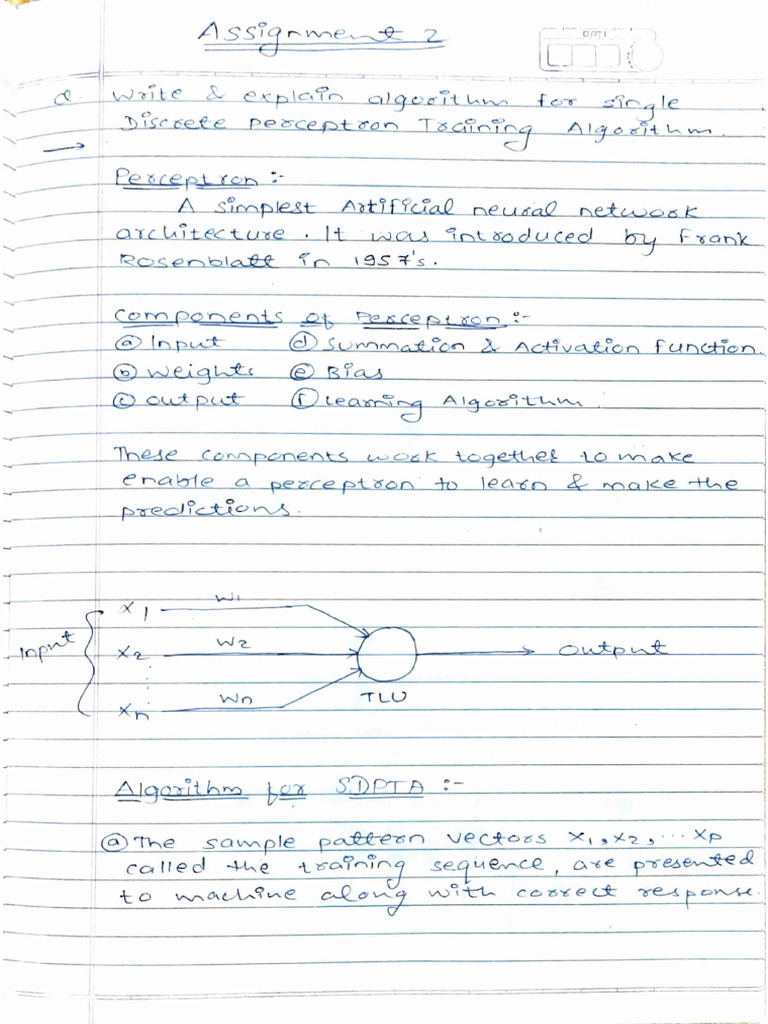 Assignment 2
DATE
Q. Write & explain algorithm for single
Discrete perceptron Training Algorithm.
→
Perceptron :-
A simplest Artificial neural network
architecture. It was introduced by Frank
Rosenblatt in 1957's.
Components of Perceptron :-
ⓐ Input ⓓ Summation & Activation function.
ⓑ Weights ⓔ Bias
ⓒ output ⓕ Learning Algorithm.
These components work together to make
enable a perceptron to learn & make the
predictions.
x1 w1
Input x2 w2 output
xn wn TLU
Algorithm for SDPTA :-
ⓐ The sample pattern vectors x1, x2, ... xp
called the training sequence, are presented
to machine along with correct response.